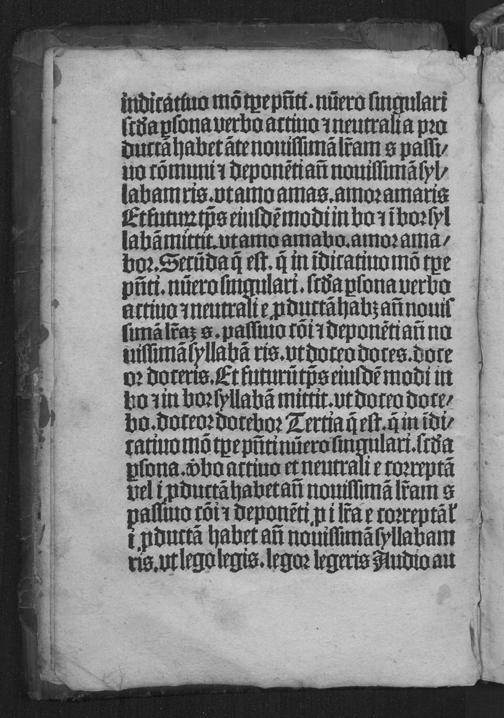 indicatiuo mõ tꝑe pñti. nũero singulari
scđa ꝑsona verbo actiuo ⁊ neutrali a pro
ductã habet ãte nouissimã lr̃am s passi/
uo cõmuni ⁊ deponẽti añ nouissimã syl/
labam ris. vt amo amas. amor amaris
Et futurũ tp̃s eiusdẽ modi in bo ⁊ ĩ bor syl
labã mittit. vt amo amabo. amor ama/
bor. Secũda q̃ est. q̃ in ĩdicatiuo mõ tꝑe
pñti. nũero singulari. scđa ꝑsona verbo
actiuo ⁊ neutrali e ꝓductã habꝫ añ nouis
simã lr̃aꝫ s. passiuo cõi ⁊ deponẽti añ no
uissimã syllabã ris. vt doceo doces. doce
or doceris. Et futurũ tp̃s eiusdẽ modi in
bo ⁊ in bor syllabã mittit. vt doceo doce/
bo. doceor docebor Tertia q̃ est. q̃ in ĩdi/
catiuo mõ tꝑe pñti nũero singulari. scđa
ꝑsona. v̾bo actiuo et neutrali e correptã
vel i ꝓductã habet añ nouissimã lr̃am s
passiuo cõi ⁊ deponẽti ꝓ i lr̃a e correptã ł
i ꝓductã habet añ nouissimã syllabam
ris. vt lego legis. legor legeris Audio au